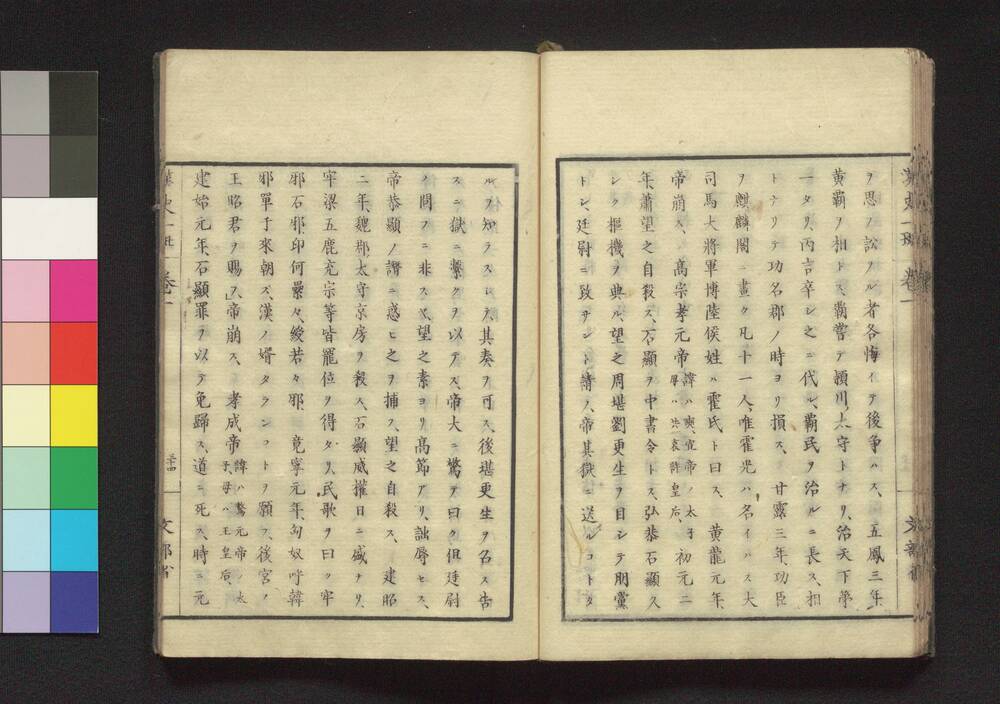 ヲ思フ、訟フル者各悔イテ後争ハス、五鳳三年
黄覇ヲ相トス、覇嘗テ潁川ノ太守トナリ、治天下第
一タリ、丙吉卒シ之ニ代ル、覇民ヲ治ルニ長ス、相
トナリテ功名郡ノ時ヨリ損ス、甘露三年、功臣
ヲ麒麟閣ニ畫ク凡十一人、唯霍光ハ名イハス大
司馬大將軍博陸侯姓ハ霍氏ト曰ス、黄龍元年、
帝崩ス、高宗孝元帝
諱ハ奭、宣帝ノ太子
母ハ共哀許皇后、
初元二
年、蕭望之自殺ス、石顯ヲ中書令トス、弘恭石顯久
シク樞機ヲ典ル、望之周堪劉更生ヲ目シテ朋黨
トシ、廷尉ニ致サント請フ、帝其獄ニ送ルコトタ
ルヲ知ラスシテ其奏ヲ可ス、後堪更生ヲ名ス、告
スニ獄ニ繋クヲ以テス、帝大ニ驚テ曰ク但廷尉
ノ問フニ非スヤ、望之素ヨリ高節アリ、詘辱セス、
帝恭顯ノ譖ニ惑ヒ之ヲ捕フ、望之自殺ス、建昭
二年、魏郡ノ太守京房ヲ殺ス、石顯威權日ニ盛ナリ、
牢梁五鹿充宗等皆寵位ヲ得タリ、民歌ヲ曰ク牢
邪石邪、印何纍々、綬若々邪、竟寧元年、匈奴呼韓
邪單于來朝ス、漢ノ婿タランコトヲ願フ、後宮ノ
王昭君ヲ賜フ、帝崩ス、孝成帝
諱ハ驁、元帝ノ太
子、母ハ王皇后、
建始元年、石顯罪ヲ以テ免歸ス、道ニ死ス、時ニ元
巻一
三十四
文部省